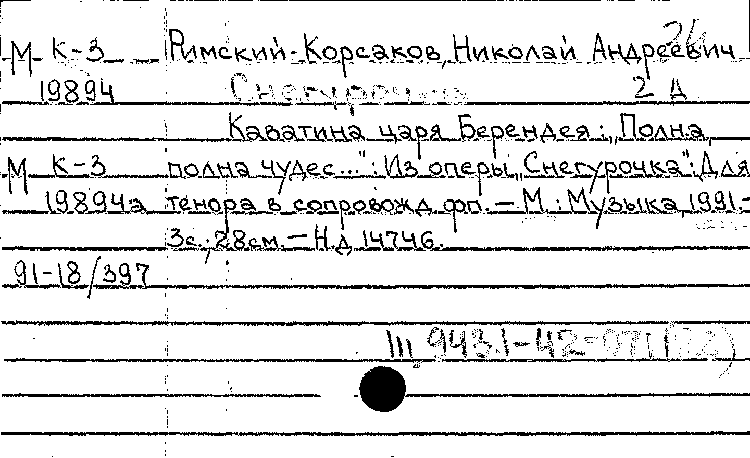 М К-3 Римский-Корсаков, Николай Андреевич
19894 Снегурочка 2 д
Каватина царя Берендея: „Полна,
М К-3 полна чудес...": Из оперы „Снегурочка": Для
19894а тенора в сопровожд. фп. — М.: Музыка, 1991.-
3с.; 28см. — Н.д. 14746.
91-18/397
III 943.1-42-